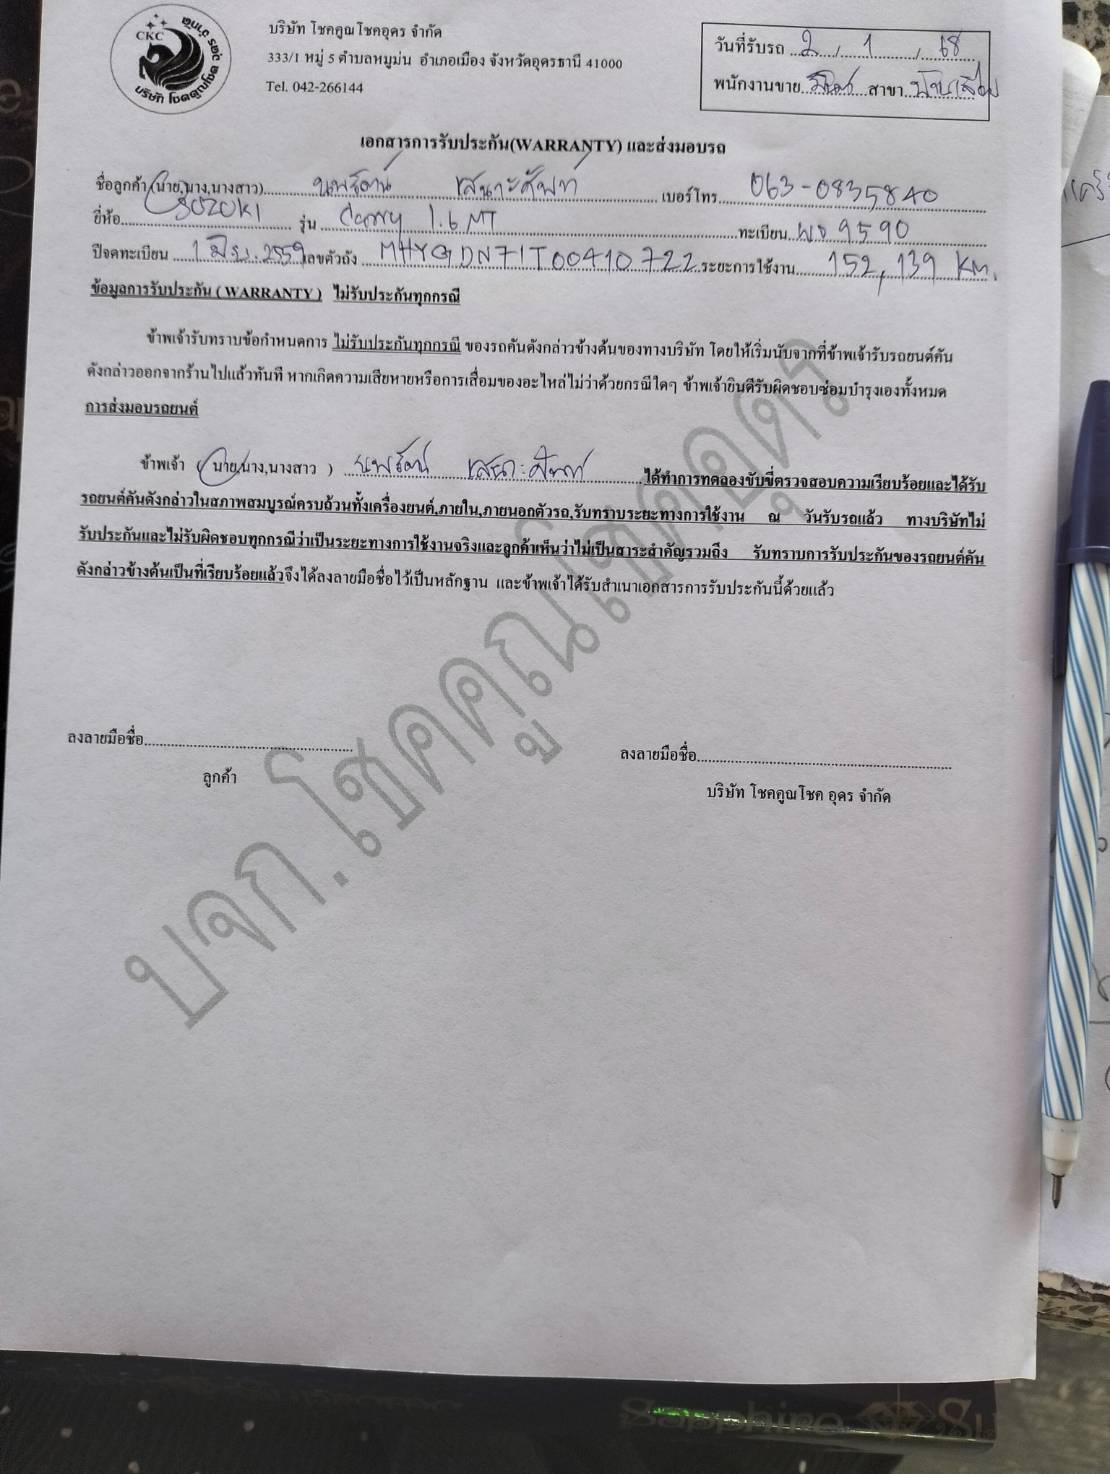 CKC
บริษัท โชคคูณโชคอุดร จำกัด
333/1 หมู่ 5 ตำบลหมูม่น อำเภอเมือง จังหวัดอุดรธานี 41000
Tel. 042-266144
วันที่รับรถ 2 / 1 / 68
พนักงานขาย สาขา
เอกสารการรับประกัน(WARRANTY) และส่งมอบรถ
ชื่อลูกค้า(นาย,นาง,นางสาว) นพรัตน์ เสนาะศัพท์ เบอร์โทร 063-0835840
ยี่ห้อ SUZUKI รุ่น carry 1.6 MT ทะเบียน 9590
ปีจดทะเบียน 1 มิ.ย. 2559 เลขตัวถัง MHYGDN71T00410722 ระยะการใช้งาน 152,139 KM.
ข้อมูลการรับประกัน ( WARRANTY ) ไม่รับประกันทุกกรณี
ข้าพเจ้ารับทราบข้อกำหนดการ ไม่รับประกันทุกกรณี ของรถคันดังกล่าวข้างต้นของทางบริษัท โดยให้เริ่มนับจากที่ข้าพเจ้ารับรถยนต์คัน
ดังกล่าวออกจากร้านไปแล้วทันที หากเกิดความเสียหายหรือการเสื่อมของอะไหล่ไม่ว่าด้วยกรณีใดๆ ข้าพเจ้ายินดีรับผิดชอบซ่อมบำรุงเองทั้งหมด
การส่งมอบรถยนต์
ข้าพเจ้า ( นาย,นาง,นางสาว ) นพรัตน์ เสนาะศัพท์ ได้ทำการทดลองขับขี่ตรวจสอบความเรียบร้อยและได้รับ
รถยนต์คันดังกล่าวในสภาพสมบูรณ์ครบถ้วนทั้งเครื่องยนต์,ภายใน,ภายนอกตัวรถ,รับทราบระยะทางการใช้งาน ณ วันรับรถแล้ว ทางบริษัทไม่
รับประกันและไม่รับผิดชอบทุกกรณีว่าเป็นระยะทางการใช้งานจริงและลูกค้าเห็นว่าไม่เป็นสาระสำคัญรวมถึง รับทราบการรับประกันของรถยนต์คัน
ดังกล่าวข้างต้นเป็นที่เรียบร้อยแล้วจึงได้ลงลายมือชื่อไว้เป็นหลักฐาน และข้าพเจ้าได้รับสำเนาเอกสารการรับประกันนี้ด้วยแล้ว
บจก.โชคคูณโชคอุดร
ลงลายมือชื่อ
ลูกค้า
ลงลายมือชื่อ
บริษัท โชคคูณโชค อุดร จำกัด
Sapphire